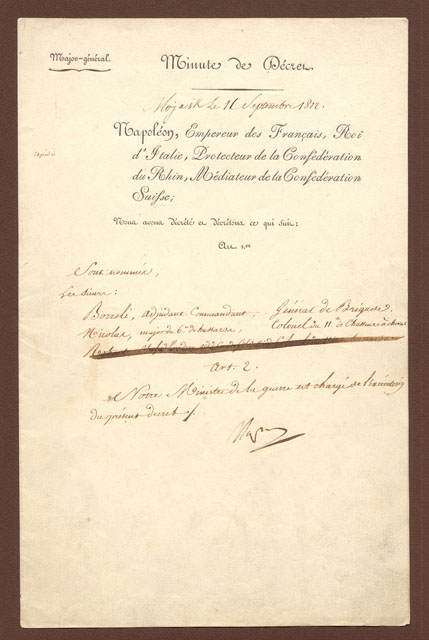 Major-général.
Minute de Décret.
Mojaisk Le 11 Septembre 1812.
Napoléon, Empereur des Français, Roi
d'Italie, Protecteur de la Confédération
du Rhin, Médiateur de la Confédération
Suisse;
Nous avons décrété et décrétons ce qui suit:
Art. 1.er
Sont nommés,
Les Sieurs:
Borelli, adjudant Commandant, Général de Brigade.
Nicolas, major du 6.e de hussards, Colonel du 11.e de Chasseurs à cheval
Art. 2.
Notre Ministre de la guerre est chargé de l'exécution
du présent decret ./.
Nap